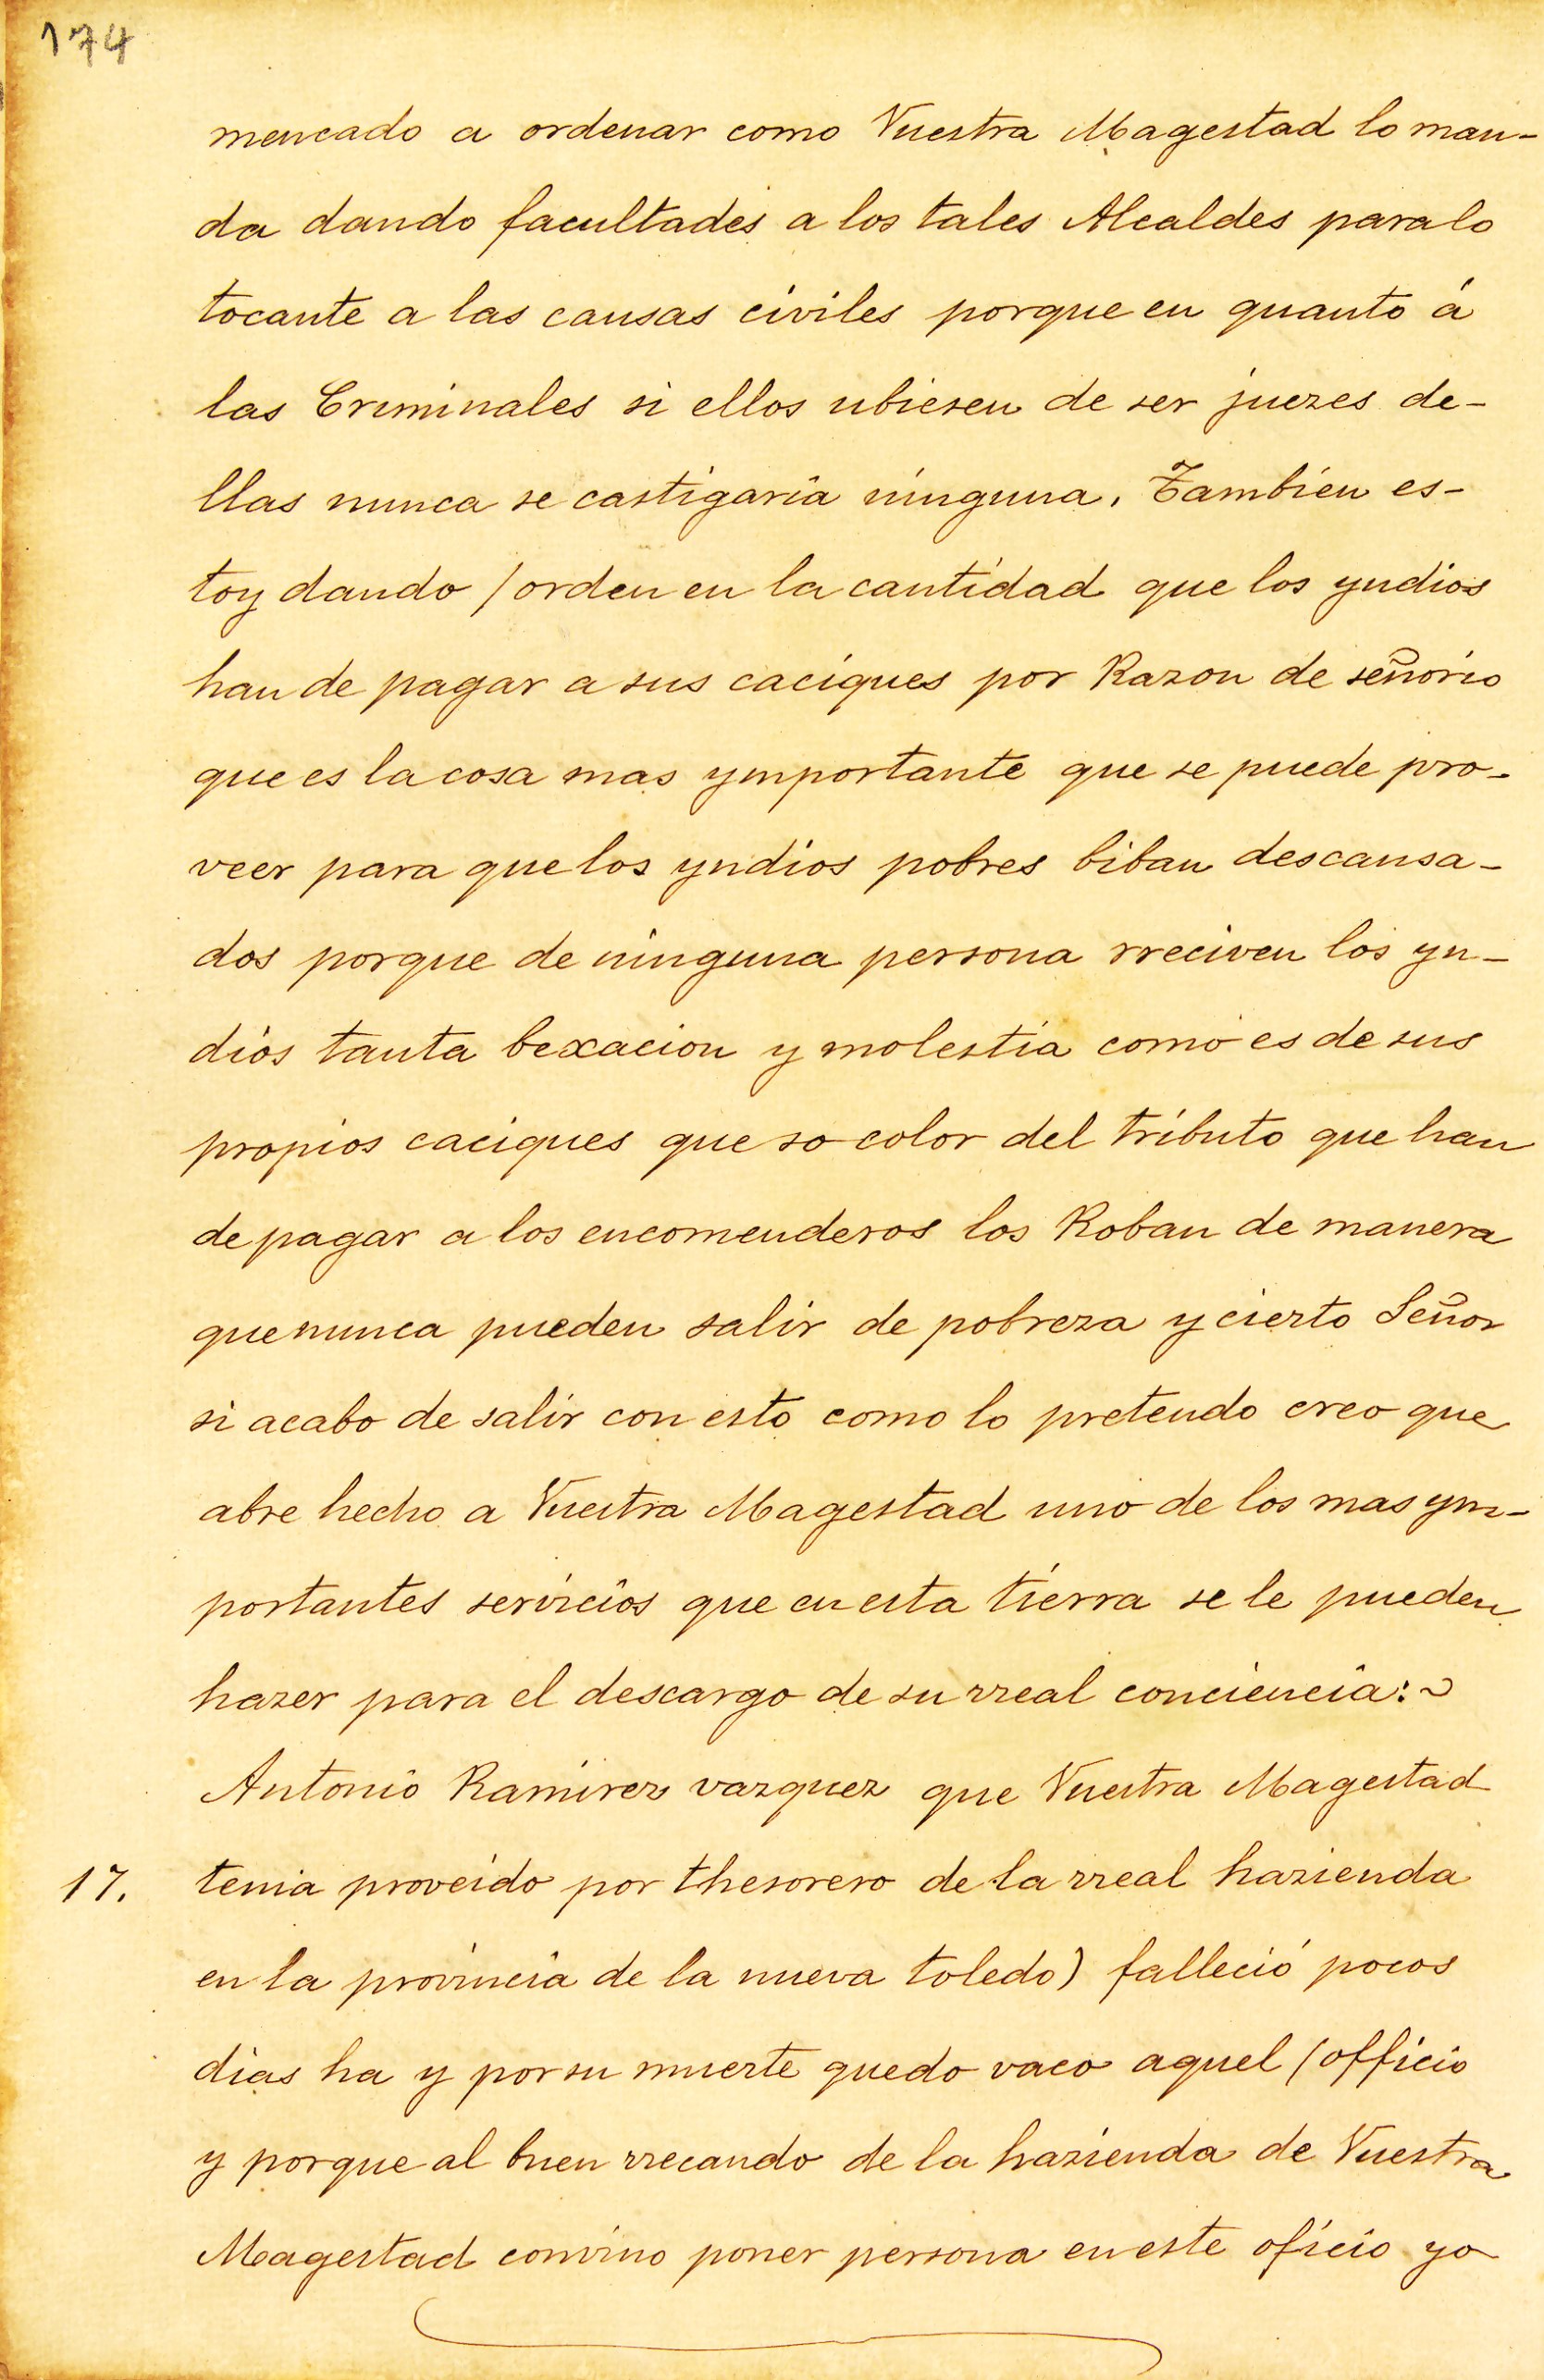 174
mencado a ordenar como Vuestra Magestad lo man-
da dando facultades a los tales Alcaldes para lo
tocante a las causas civiles porque en quanto á
las Criminales si ellos ubiesen de ser juezes de-
llas nunca se castigaria ninguna. Tambien es-
toy dando /orden en la cantidad que los yndios
han de pagar a sus caciques por Razon de señorio
que es la cosa mas ymportante que se puede pro-
veer para que los yndios pobres biban descansa-
dos porque de ninguna persona rreciven los yn-
dios tanta bexacion y molestia como es de sus
propios caciques que so color del tributo que han
de pagar a los encomenderos los Roban de manera
que nunca pueden salir de pobreza y cierto Señor
si acabo de salir con esto como lo pretendo creo que
abre hecho a Vuestra Magestad uno de los mas ym-
portantes servicios que en esta tierra se le pueden
hazer para el descargo de su rreal conciencia:~
Antonio Ramirez vazquez que Vuestra Magestad
17. tenia proveido por thesorero de la rreal hazienda
en la provincia de la nueva toledo) falleció pocos
dias ha y por su muerte quedo vaco aquel (officio
y porque al buen rrecaudo de la hazienda de Vuestra
Magestad convino poner persona en este oficio yo